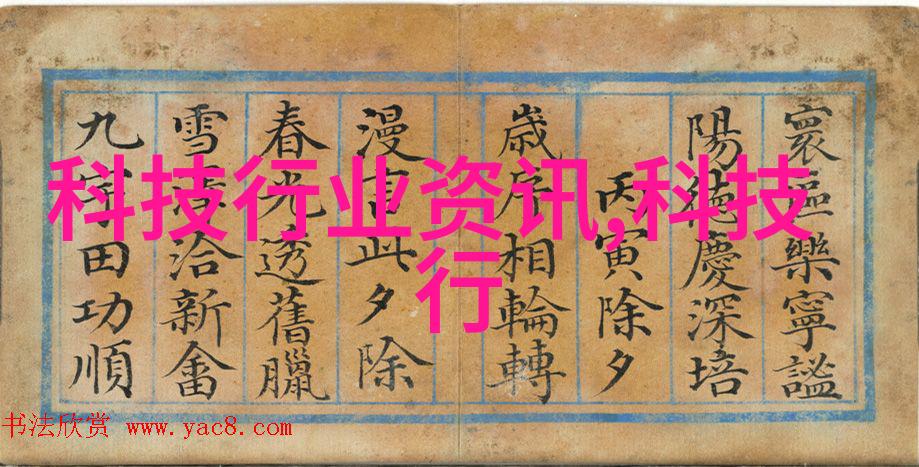 科技行业资讯,科技
行
寰區樂寧謐
陽德慶深培
丙寅除夕
歲序相輪轉
漫言此夕除
春光透舊臘
雪洽新畬
九田功順
书法欣赏 www.yac8.com